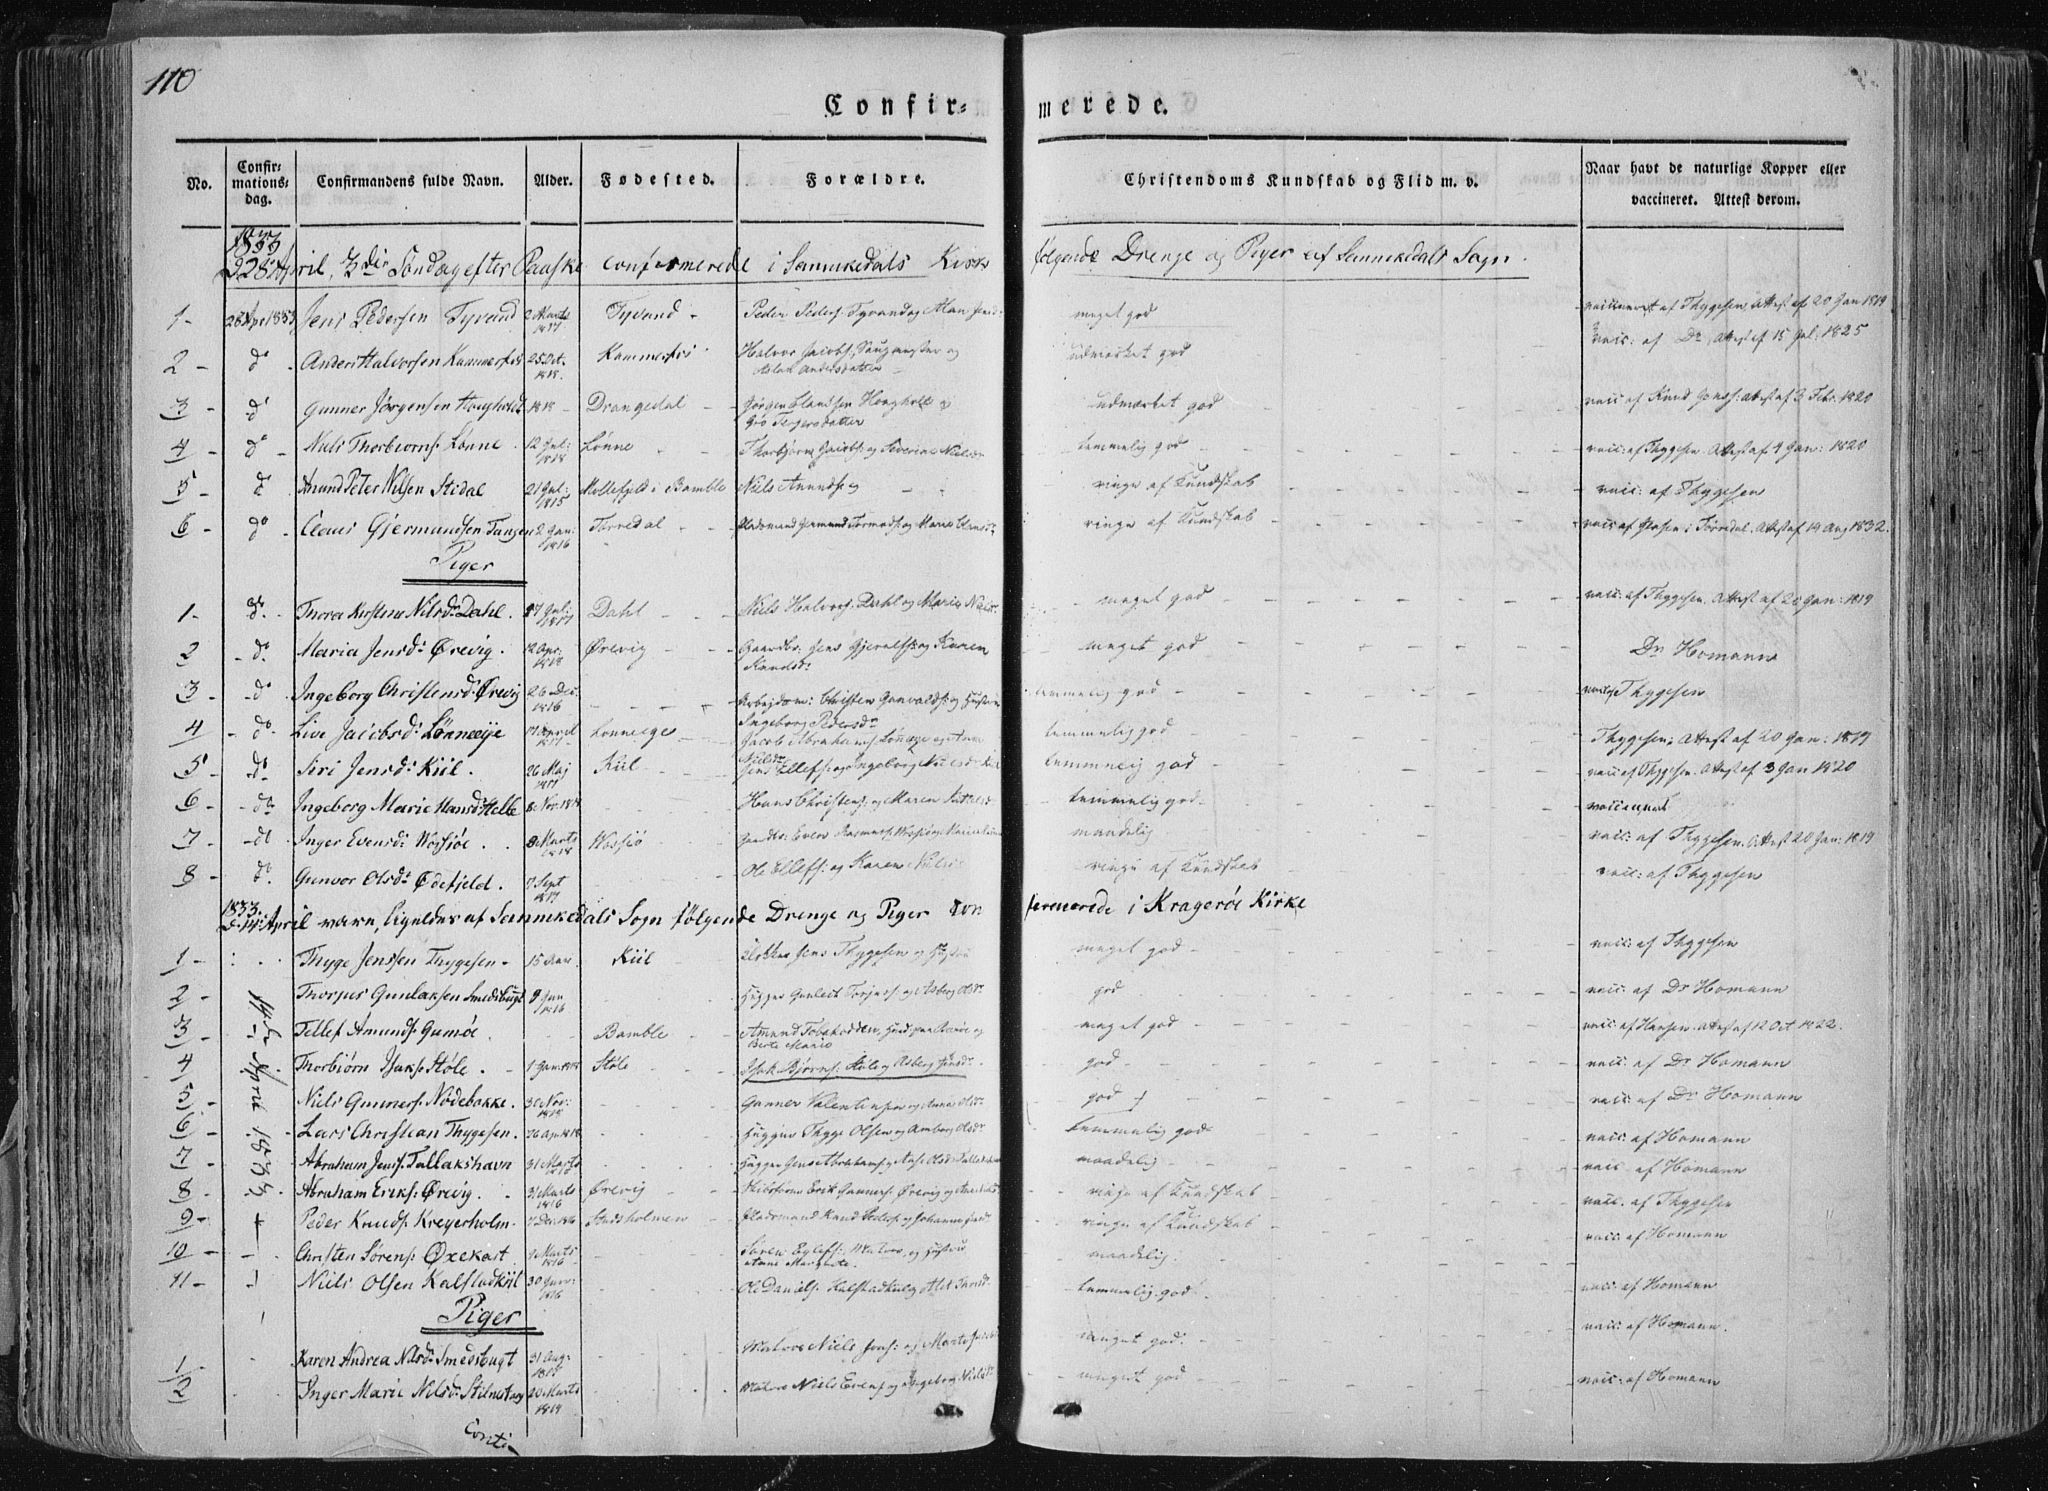 110
Confir=
merede.
No.
Confir-
mations-
dag.
Confirmandens fulde Navn.
Alder.
Fødested.
Forældre.
Christendoms Kundskab og Flid m. v.
Naar havt de naturlige Kopper eller
vaccineret. Attest derom.
1833
28 April, 3die Søndag efter Paaske confirmerede i Sannikedals Kirke følgende Drenge og Piger af Sannikedals Sogn.
1- 28 Apr 1833 Jens Pedersen Tyvand 2 Marts 1817 Tyvand - Peder Peders: Tyvand og meget god vaccineret af Thygesen, Attest af 20 Jan 1819
2 - do Anders Halvorsen Kammerfos 25 Oct. 1818. Kammerfos Halvor Jacobs: og Aslau Andersdatter udmærket god vacc: af Do, Attest af 15 Jul: 1825
3 - do Gunner Jørgensen Hougholt 1818 - Drangedal - Jørgen Clausen Hougholt og Gro Torgersdatter udmærket god vacc af Knud Jons: attest af 3 Febr. 1820
4 - do Niels Thorbiørns: Lønne. 12 Jul: 1818 Lønne Thorbjørn Jacobs: og Severine Nielsdr temmelig god vacc: af Thygesen. Attest af 4 Jan: 1820
5 - do Anund Peter Nilsen Stidal 21 Jul: 1815 Mollefjeld i Bamble Niels Anunds: og ringe af Kundskab vacc: af Thygesen
6 - do Claus Gjermundsen Tangen 2 Jan: 1816 Torredal - Pladsmand Germund Tormods: og Maria Clausdr ringe af Kundskab vacc af i Tørredal. Attest af 14 Aug 1832.
Piger
1- do. Thora Kirstine Nilsdr Dahl. 17 Jul: 1817 Dahl Niels Halvors: Dahl og Maria Nielsdr meget god vacc: af Thygesen. Attest af 20 Jan: 1819
2 - do. Maria Jensdr Ørevig. 12 Apr: 1818 Ørevig Gaardbr: Jens Gjerulfs: og Karen Knudsdr meget god Dr Homann
3 - do Ingeborg Christensdr Ørevig 26 Dec. 1816 Arbejdsm: Christen Gunvalds: og Hustru Ingeborg Pedersdr temmelig god Thygesen
4 - do. Live Jacobsdr Lønneeje 17 April 1817 Lønneege Jacob Abrahams: Lønneege og Anne Nielsdr temmelig god Thygesen, Attest af 20 Jan: 1819
5 - do. Siri Jensdr Kiil. 26 Maj 1817 Kiil Jens Ellefs: og Ingeborg Nielsdr Kiil temmelig god vacc: af Thygesen. Attest af 3 Jan 1820
6 - do Ingeborg Marie Hansdr Helle 8 Nov. 1818 Hans Christens: og Maren temmelig god vaccineret
7 - do Inger Evensdr Vossiøe. 8 Marts 1818 Vossiø Gaardbr: Even Rasmus: Vossiø og maadelig vacc: af Thygesen. Attest 20 Jan: 1819
8 - do. Gunvor Olsdr Ødefjeld. 7 Sept 1817 Ole Ellefs: og Karen Nielsdr ringe af Kundskab vacc: af Thygesen
1833
d. 14 April varen, ligeledes af Sannikedals Sogn følgende Drenge og Piger confirmerede i Kragerøe Kirke
1 - Thyge Jenssen Thygesen - 15 Kiil Jens Thygesen og Hustru meget god vacc: af Thygesen
2 - 14de April 1833 Thorjus Gunlaksen Smedsbugt 9 Jan 1816 Hugger Gunleik Torjus: og Asberg Olsdr god vacc: af Dr Homann
3 - Tellef Amunds: Gumøe Bamble Amund og Berte Maria meget god vacc: af Hansen. Attest af 12 Oct. 1822.
4 - Thorbiørn Isaks: Støle. 1 Jan: 1818 Støle Isak Bjørns: Støle og Asberg Jensdr god vacc: af Dr Homann
5 - Niels Gunners: Nødebakke. 30 Nov: 1818 Gunner Valentinsen og Anna Olsdr god vacc: af Dr Homann
6 - Lars Christian Thygesen. 26 Apr. 1818 Hugger Thyge Olsen og Amborg Olsdr temmelig god vacc: af Homann
7 - Abraham Jens: Tallakshavn 31 Marts Hugger Jens Abrahams: og maadelig vacc: af Homann
8 - Abraham Eriks: Ørevig. 31 Marts 1816 Ørevig Erik Gunners: Ørevig og ringe af Kundskab vacc. af Thygesen
9 - Peder Knuds: Kreyerholm. 7 Dec: 1816 Stadsholmen Pladsmand Knud Peders: og Johanne ringe af Kundskab vacc: af Homann
10 - Christen Sørens: Øxekast 1 Marts 1816 Søren Matros, og Hustru Anne Margrete. maadelig.
11 - Niels Olsen Kalstadkiil 30 Janr: 1816 Ole Daniels: Kalstadkiil og temmelig god. vacc: af Homann
Piger
1 - Karen Andrea Nilsdr Smedsbugt 31 Aug: 1817 Matros Niels Jens: og Marte meget god. vacc: af Homann.
2 Inger Marie Nilsdr 20 Marts 1819 Matros Niels Evens: og Ingeborg Nielsdr meget god vacc: af Homann
Conti